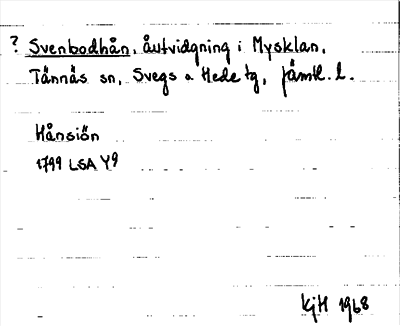 ? Svenbodhån, åutvidgning i Mysklan,
Tännäs sn, Svegs o Hede tg, Jämtl. l.
Hånsiön
1799 LSA Y9
KjH 1968